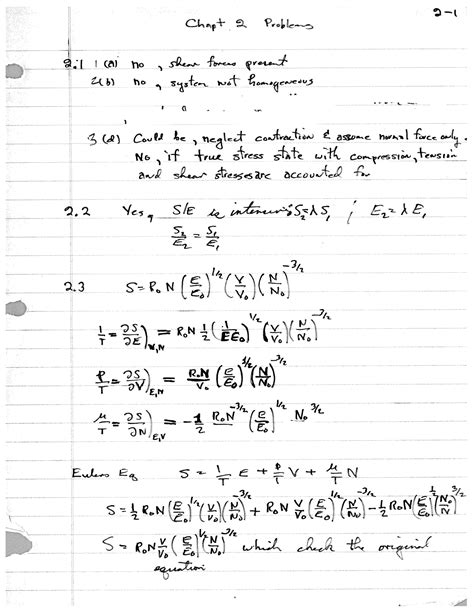 2-1
Chapt 2 Problems
2.1 1(a) no, shear forces present
2(b) no, system not homogeneous
3(d) Could be, neglect contraction & assume normal force only.
No, if true stress state with compression, tension
and shear stresses are accounted for
2.2 Yes, S/E is intensive S₂=λS₁ ; E₂=λE₁
S₂/E₂ = S₁/E₁
2.3 S=R₀N(E/E₀)^1/2 (V/V₀)(N/N₀)^-3/2
1/T = ∂S/∂E)_V,N = R₀N 1/2 (1/EE₀)^1/2 (V/V₀)(N/N₀)^-3/2
P/T = ∂S/∂V)_E,N = R₀N/V₀ (E/E₀)^1/2 (N/N₀)^-3/2
μ/T = ∂S/∂N)_E,V = -1/2 R₀N^-3/2 (E/E₀)^1/2 N₀^3/2
Eulers Eq S = 1/T E + P/T V + μ/T N
S=1/2 R₀N(E/E₀)^1/2 (V/V₀)(N/N₀)^-3/2 + R₀N V/V₀ (E/E₀)^1/2 (N/N₀)^-3/2 -1/2 R₀N(E/E₀)^1/2 (N₀/N)^3/2
S=R₀N V/V₀ (E/E₀)^1/2 (N/N₀)^-3/2 which check the original
equation